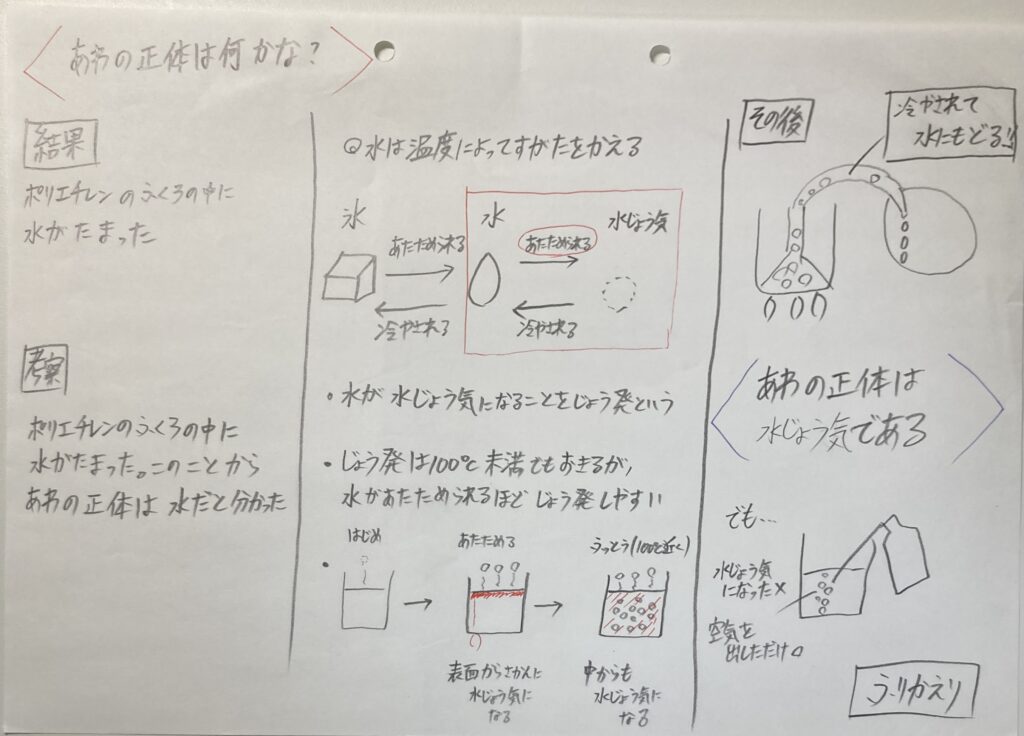 あわの正体は何かな?
結果
ポリエチレンのふくろの中に
水がたまった
考察
ポリエチレンのふくろの中に
水がたまった。このことから
あわの正体は水だと分かった
水は温度によってすがたをかえる
氷
水
水じょう気
あたためられる
あたためられる
冷やされる
冷やされる
・水が水じょう気になることをじょう発という
・じょう発は100℃未満でもおきるが、
水があたためられるほどじょう発しやすい
はじめ
あたためる
ふっとう(100℃近く)
表面からさかんに
水じょう気に
なる
中からも
水じょう気に
なる
その後
冷やされて
水にもどる!!
あわの正体は
水じょう気である
でも…
水じょう気
になった×
空気を
出しただけ○
ふりかえり